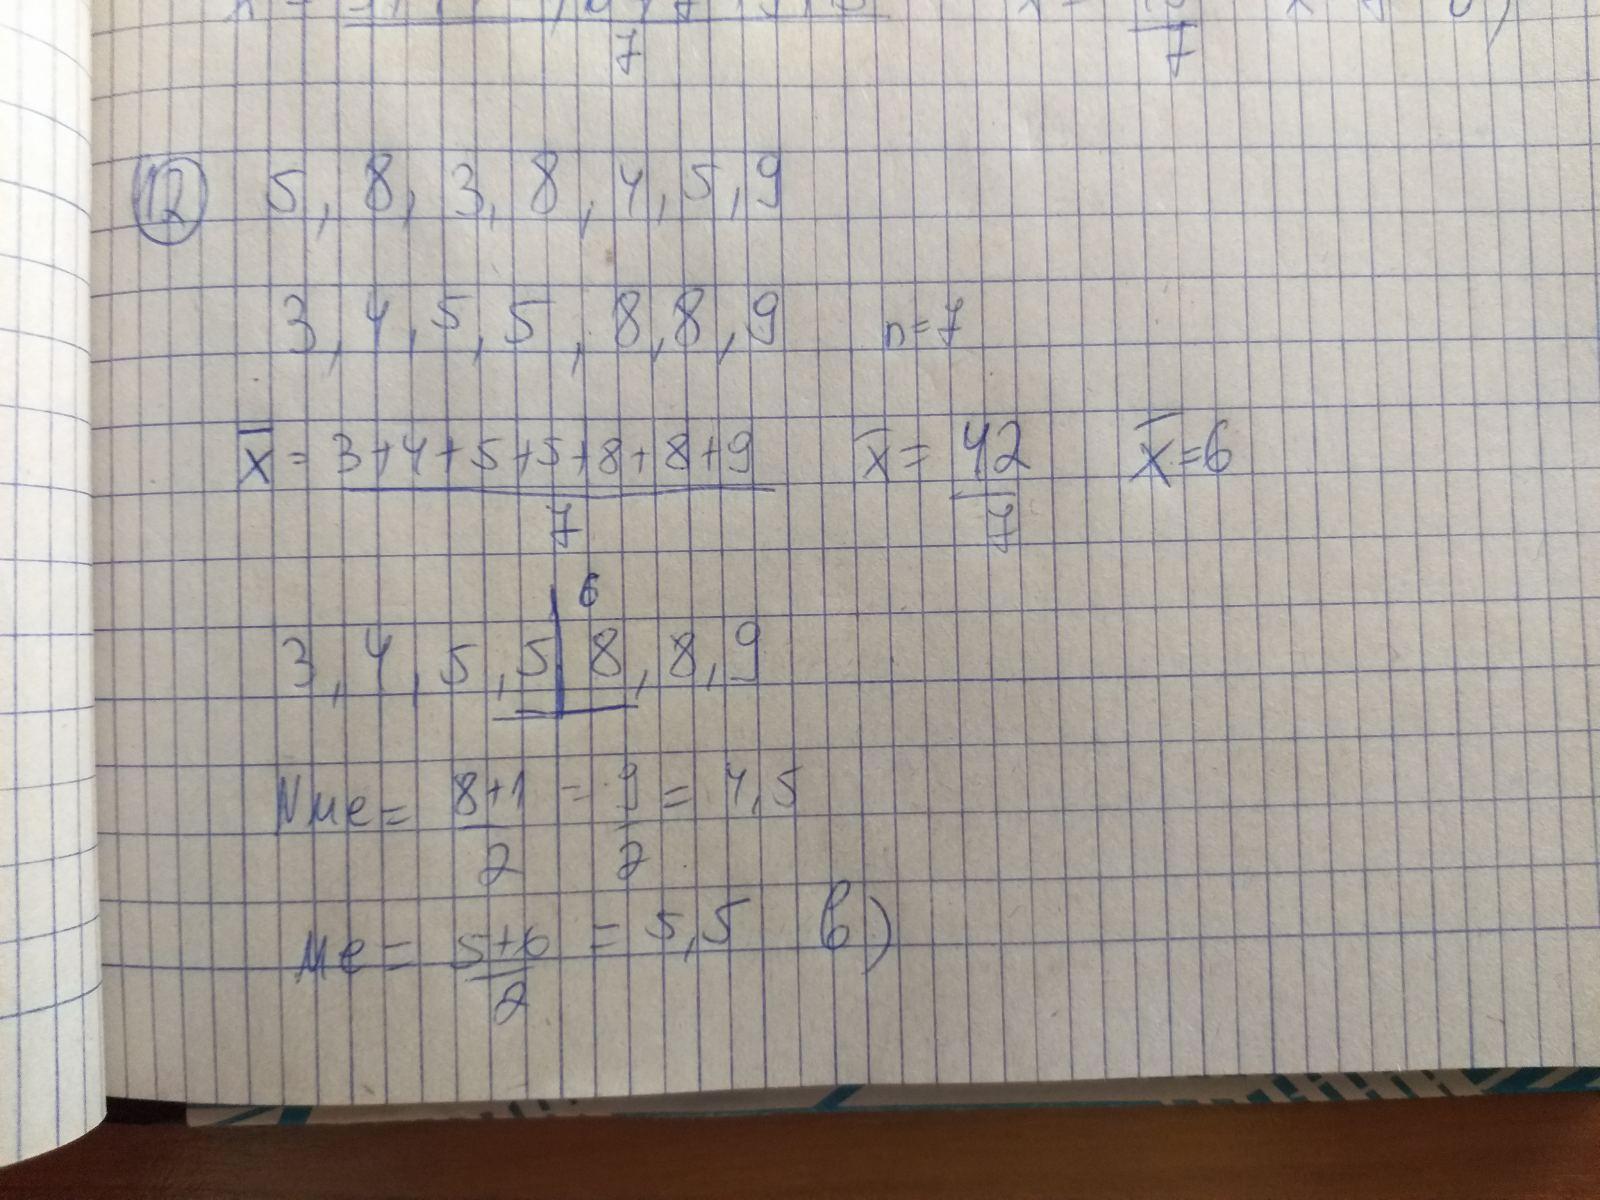 7 7
12 5, 8, 3, 8, 4, 5, 9
3, 4, 5, 5, 8, 8, 9 n=7
x̄ = 3+4+5+5+8+8+9 / 7 x̄ = 42 / 7 x̄=6
6
3, 4, 5, 5 | 8, 8, 9
Nме = 8+1 / 2 = 9 / 2 = 4,5
Ме = 5+6 / 2 = 5,5 в)